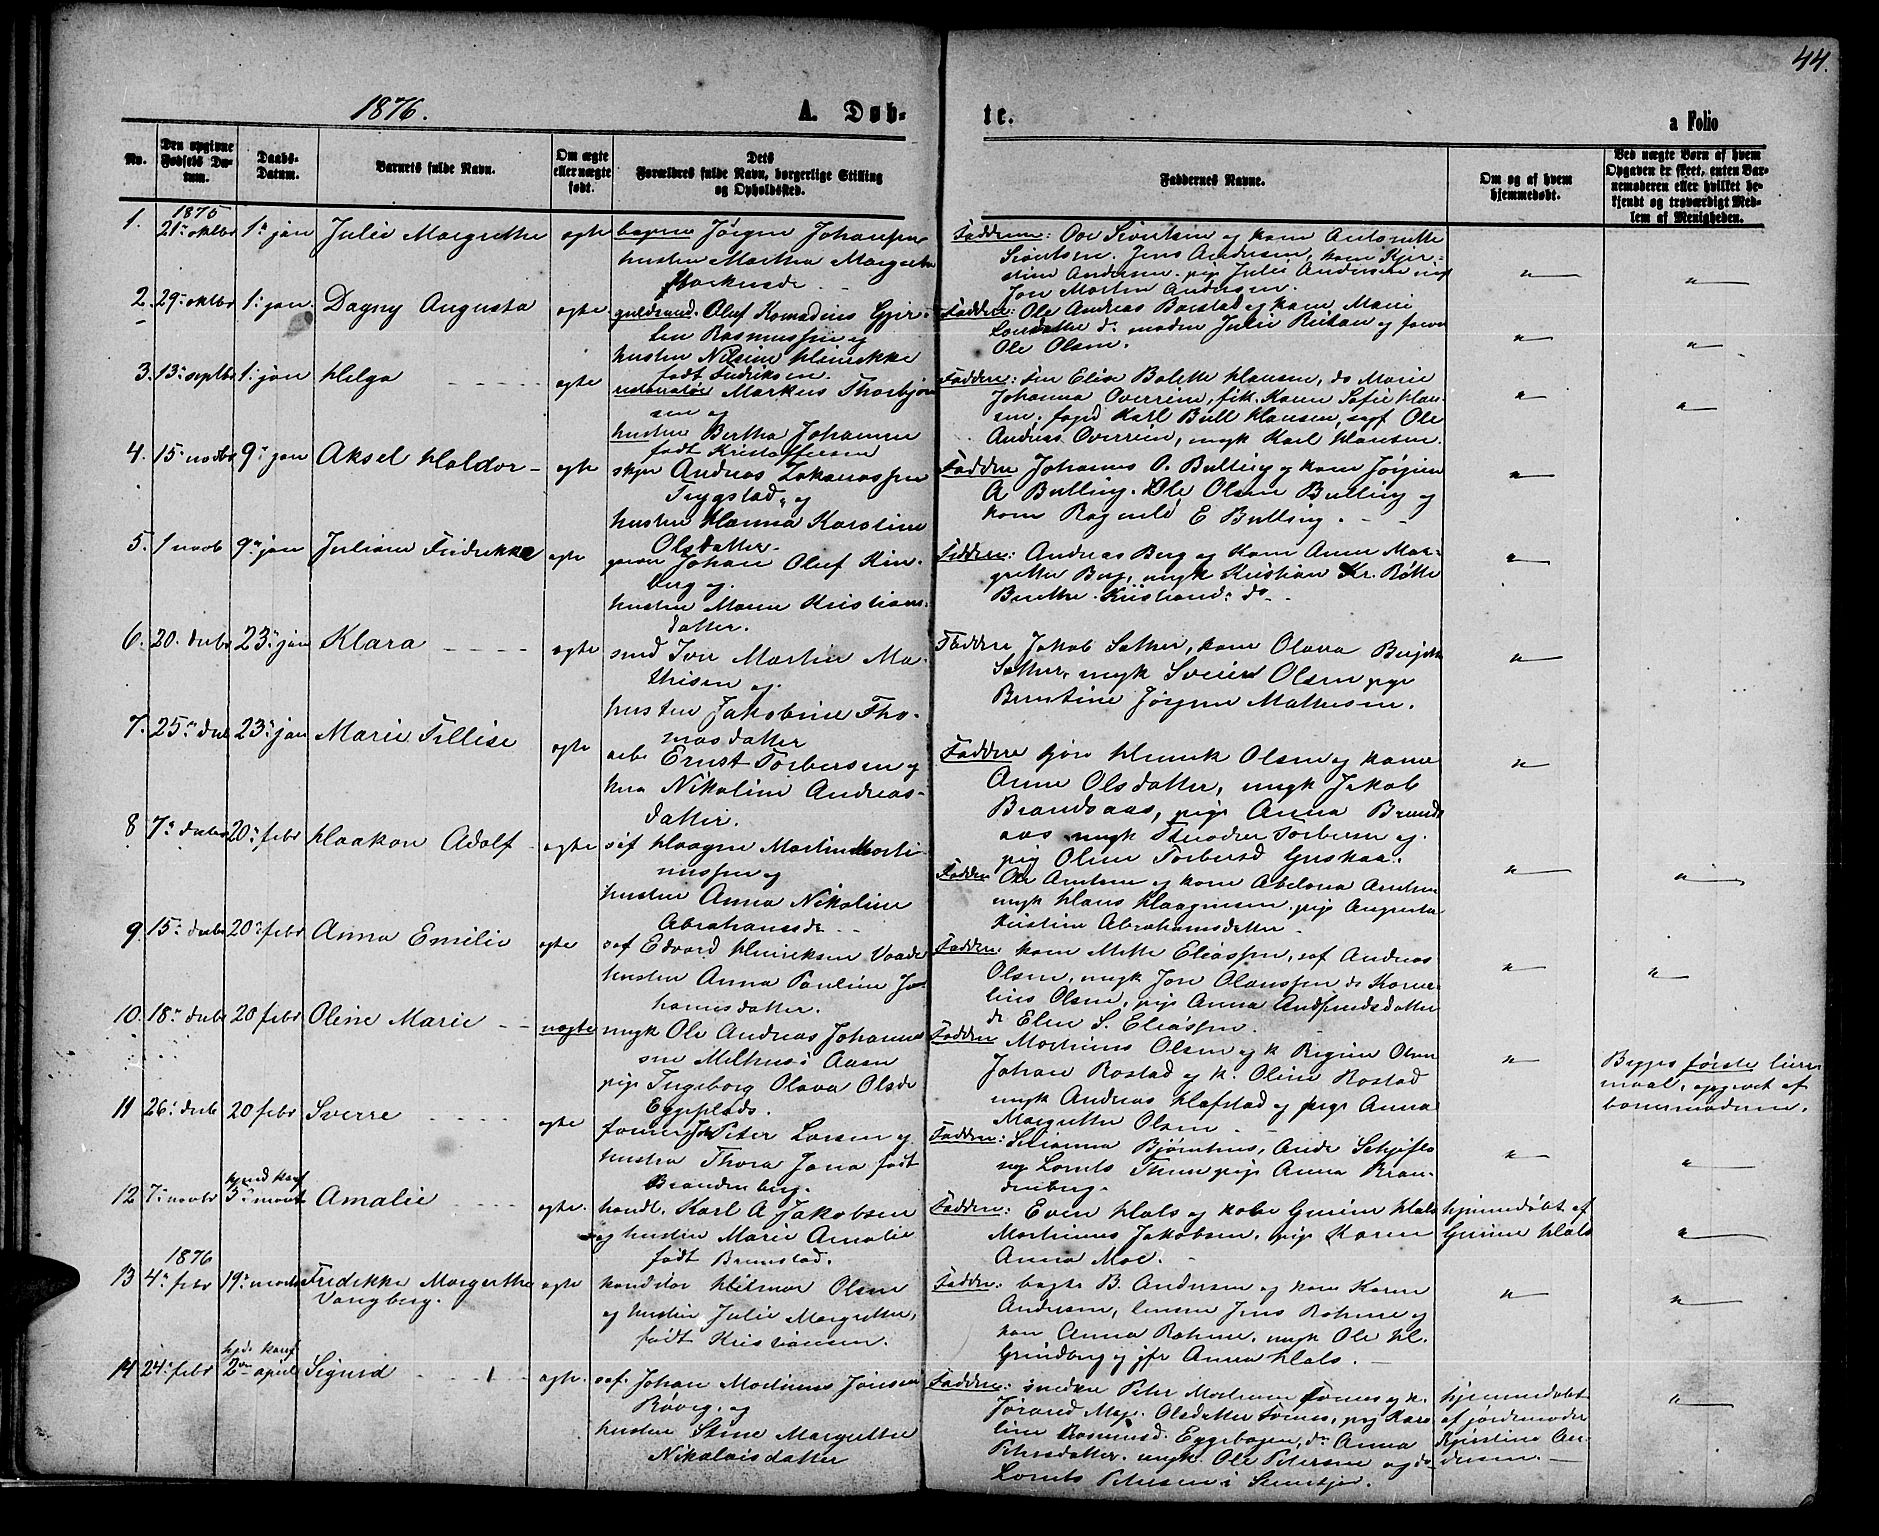 44.
1876.
A. Døb-
te.
a Folio
No.
Den opgivne Fødsels Datum.
Daabs-Datum.
Barnets fulde Navn.
Om ægte eller uægte født.
Dets Forældres fulde Navn, borgerlige Stilling og Opholdssted.
Faddernes Navne.
Om og af hvem hjemmedøbt.
Ved uægte Børn af hvem Opgaven er skeet, enten Barnemoderen eller hvilket bekjendt og troværdigt Medlem af Menigheden.
1875
1. 21. oktbr 1. jan Julie Margrethe ægte
Jørgen Johansen
hustru Martha Margrethe
Faddere: Ove Sivertsen og kone Antonette
Sivertsen. Jens Andersen, kone Kjer-
stine Andersen. pige Julie Andersen
Jon Martin Andersen.
2. 29. oktbr 1. jan. Dagny Augusta ægte
guldsmd. Oluf
Rasmussen og
hustru Nilsine Hinrikke
født Fredriksen.
Faddere: Ole Andreas Barstad og kone Marie
Julie Reitan og
Ole Olsen.
3. 13. septbr 1. jan Helga ægte
Markus Thorbjørn-
sen og
hustru Bertha Johanna
født Kristoffersen
Faddere: Elise Bolette Hansen, do Marie
Johanna Overrein, frk. Karen Sofie Han-
sen, foged Karl Bull Hansen, sagf Ole
Andreas Overrein, ungk Karl Hansen.
4. 15. novbr 9. jan Aksel Haldor ægte
Andreas Zakariassen
Trygstad, og
hustru Hanna Karstine
Olsdatter.
Faddere Johannes O. Bulling og kone Jørgine
A Bulling. Ole Olsen Bulling og
kone Ragnild E Bulling.
5. 1 novb 9. jan Juliane Fredrikke ægte
Johan Oluf Kin-
berg og
hustru Maren Kristians-
datter.
Faddere: Andreas Berg og kone Anne Mar-
grethe Berg, ungk Kristian Kr. Røtte
Berethe Kristiansd. do
6. 20. decbr 23. jan Klara ægte
smed Iver Martin Ma-
thisen og
hustru Jakobine Tho-
masdatter
Faddere Jakob Sæther, kone Olava
Sæther, ungk Svein Olsen pige
Berntine Jørgine Mathisen.
7. 25. decb 23. jan Marie Tillise ægte
arb Ernst Torbersen og
hus Nikoline Andreas-
datter.
Faddere Henrik Olsen og kone
Anne Olsdatter, ungk Jakob
Brandsaas, pige Anna Brand-
aas ungk Theodor Torbersen og
pig Oline Torbersd
8 7. decbr 20. febr Haakon Adolf ægte
Haagen Martin Marti-
nussen og
hustru Anna Nikoline
Abrahamsd.
Faddere Ole Arntsen og kone Abelona Arntsen
ungk Hans Haagensen. pige Augusta
Kristine Abrahamsdatter
9. 15. decbr 20. febr Anna Emilie ægte
Edvard Henriksen
hustru Anna Pauline Jo-
hannesdatter.
Faddere: kone Mette Eliassen, Andreas
Olsen, ungk Jon Olaussen do Korne-
lius Olsen, pige Anna
do Elen S. Eliassen.
10. 18. decbr 20 febr Oline Marie uægte
ungk Ole Andreas Johannes-
sen Melhus i Aasen
pige Ingeborg Olava Olsdr
Eggeplads.
Faddere Martinus Olsen og k Regine Olsen
Johan Rostad og k. Oline Rostad
ungk Andreas Hafstad og pige Anna
Margrethe Olsen
Begges første leier-
maal, opgivet af
barnemoderen.
11 26. decb 20 febr Sverre ægte
Peter Larsen og
hustru Thora Jana født
Brandenberg.
Faddere: Bjørnhus, Ande Schefte
og Lorents Thune pige Anna Bran-
denberg.
12 7. novbr hjemd konf 5. marts Amalie ægte.
handl. Karl A Jakobsen
og hustru Marie Amalie
født Brunstad.
Faddere: Even Hals og kone Gurine Hals
Martinus Jakobsen, pige Karen
Anna Moe.
hjemmedøbt af
Gurine Hals
1876
13 4. febr 19. marts Fredrikke Margrethe
Vangberg. ægte
konditor Hilmar Olsen
og hustru Julie Margrethe,
født Kristiansen.
Faddere: B. Andersen og kone Karen
Andersen, Jens Rohne og
kone Anna Rohne. ungk Ole Hl.
Grindberg og jfr Anna Hals.
14 24. febr hjd. konf 2. april Sigurd ægte.
Johan Martinus Jonsen
og
hustru Stine Margrethe
Nikolaisdatter
Faddere: snedker Peter Martinus Tornes og k.
Olsdatter Tornes, pig Karo-
line Rasmusd. Eggebogen, do Anna
Petersdatter. ungk. Ole Petersen og do
Lorents Petersen i Stenkjer.
hjemmedøbt
af jordemoder
Kjerstine An-
dersen.